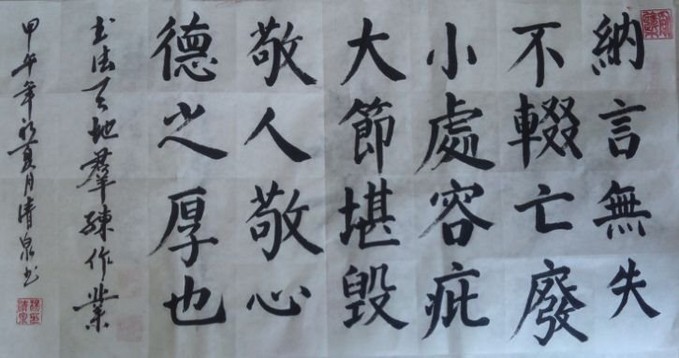 納言無失
不輟亡廢
小處容疵
大節堪毀
敬人敬心
德之厚也
书法天地羣練作業
甲午年初夏月清泉书